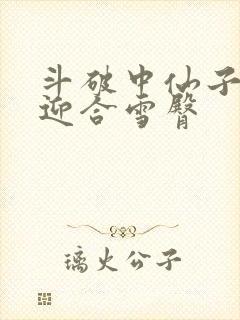 斗破中仙子
迎合雪臀
璃火公子